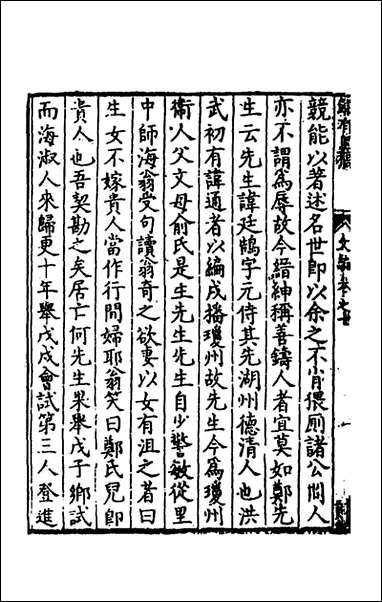 競能以著述名世即以余之不肖猥厠諸公間人
亦不謂為辱故今縉紳稱善鑄人者宜莫如鄭先
生云先生諱廷鵠字元侍其先湖州德清人也洪
武初有諱通者以編戍播瓊州故先生今為瓊州
衞人父文母俞氏是生先生先生自少警敏從里
中師海翁受句讀翁奇之欲妻以女有沮之者曰
生女不嫁貴人當作行間婦耶翁笑曰鄭氏兒即
貴人也吾契勘之矣居亡何先生果舉戊子鄉試
而海淑人來歸更十年舉戊戌會試第三人登進